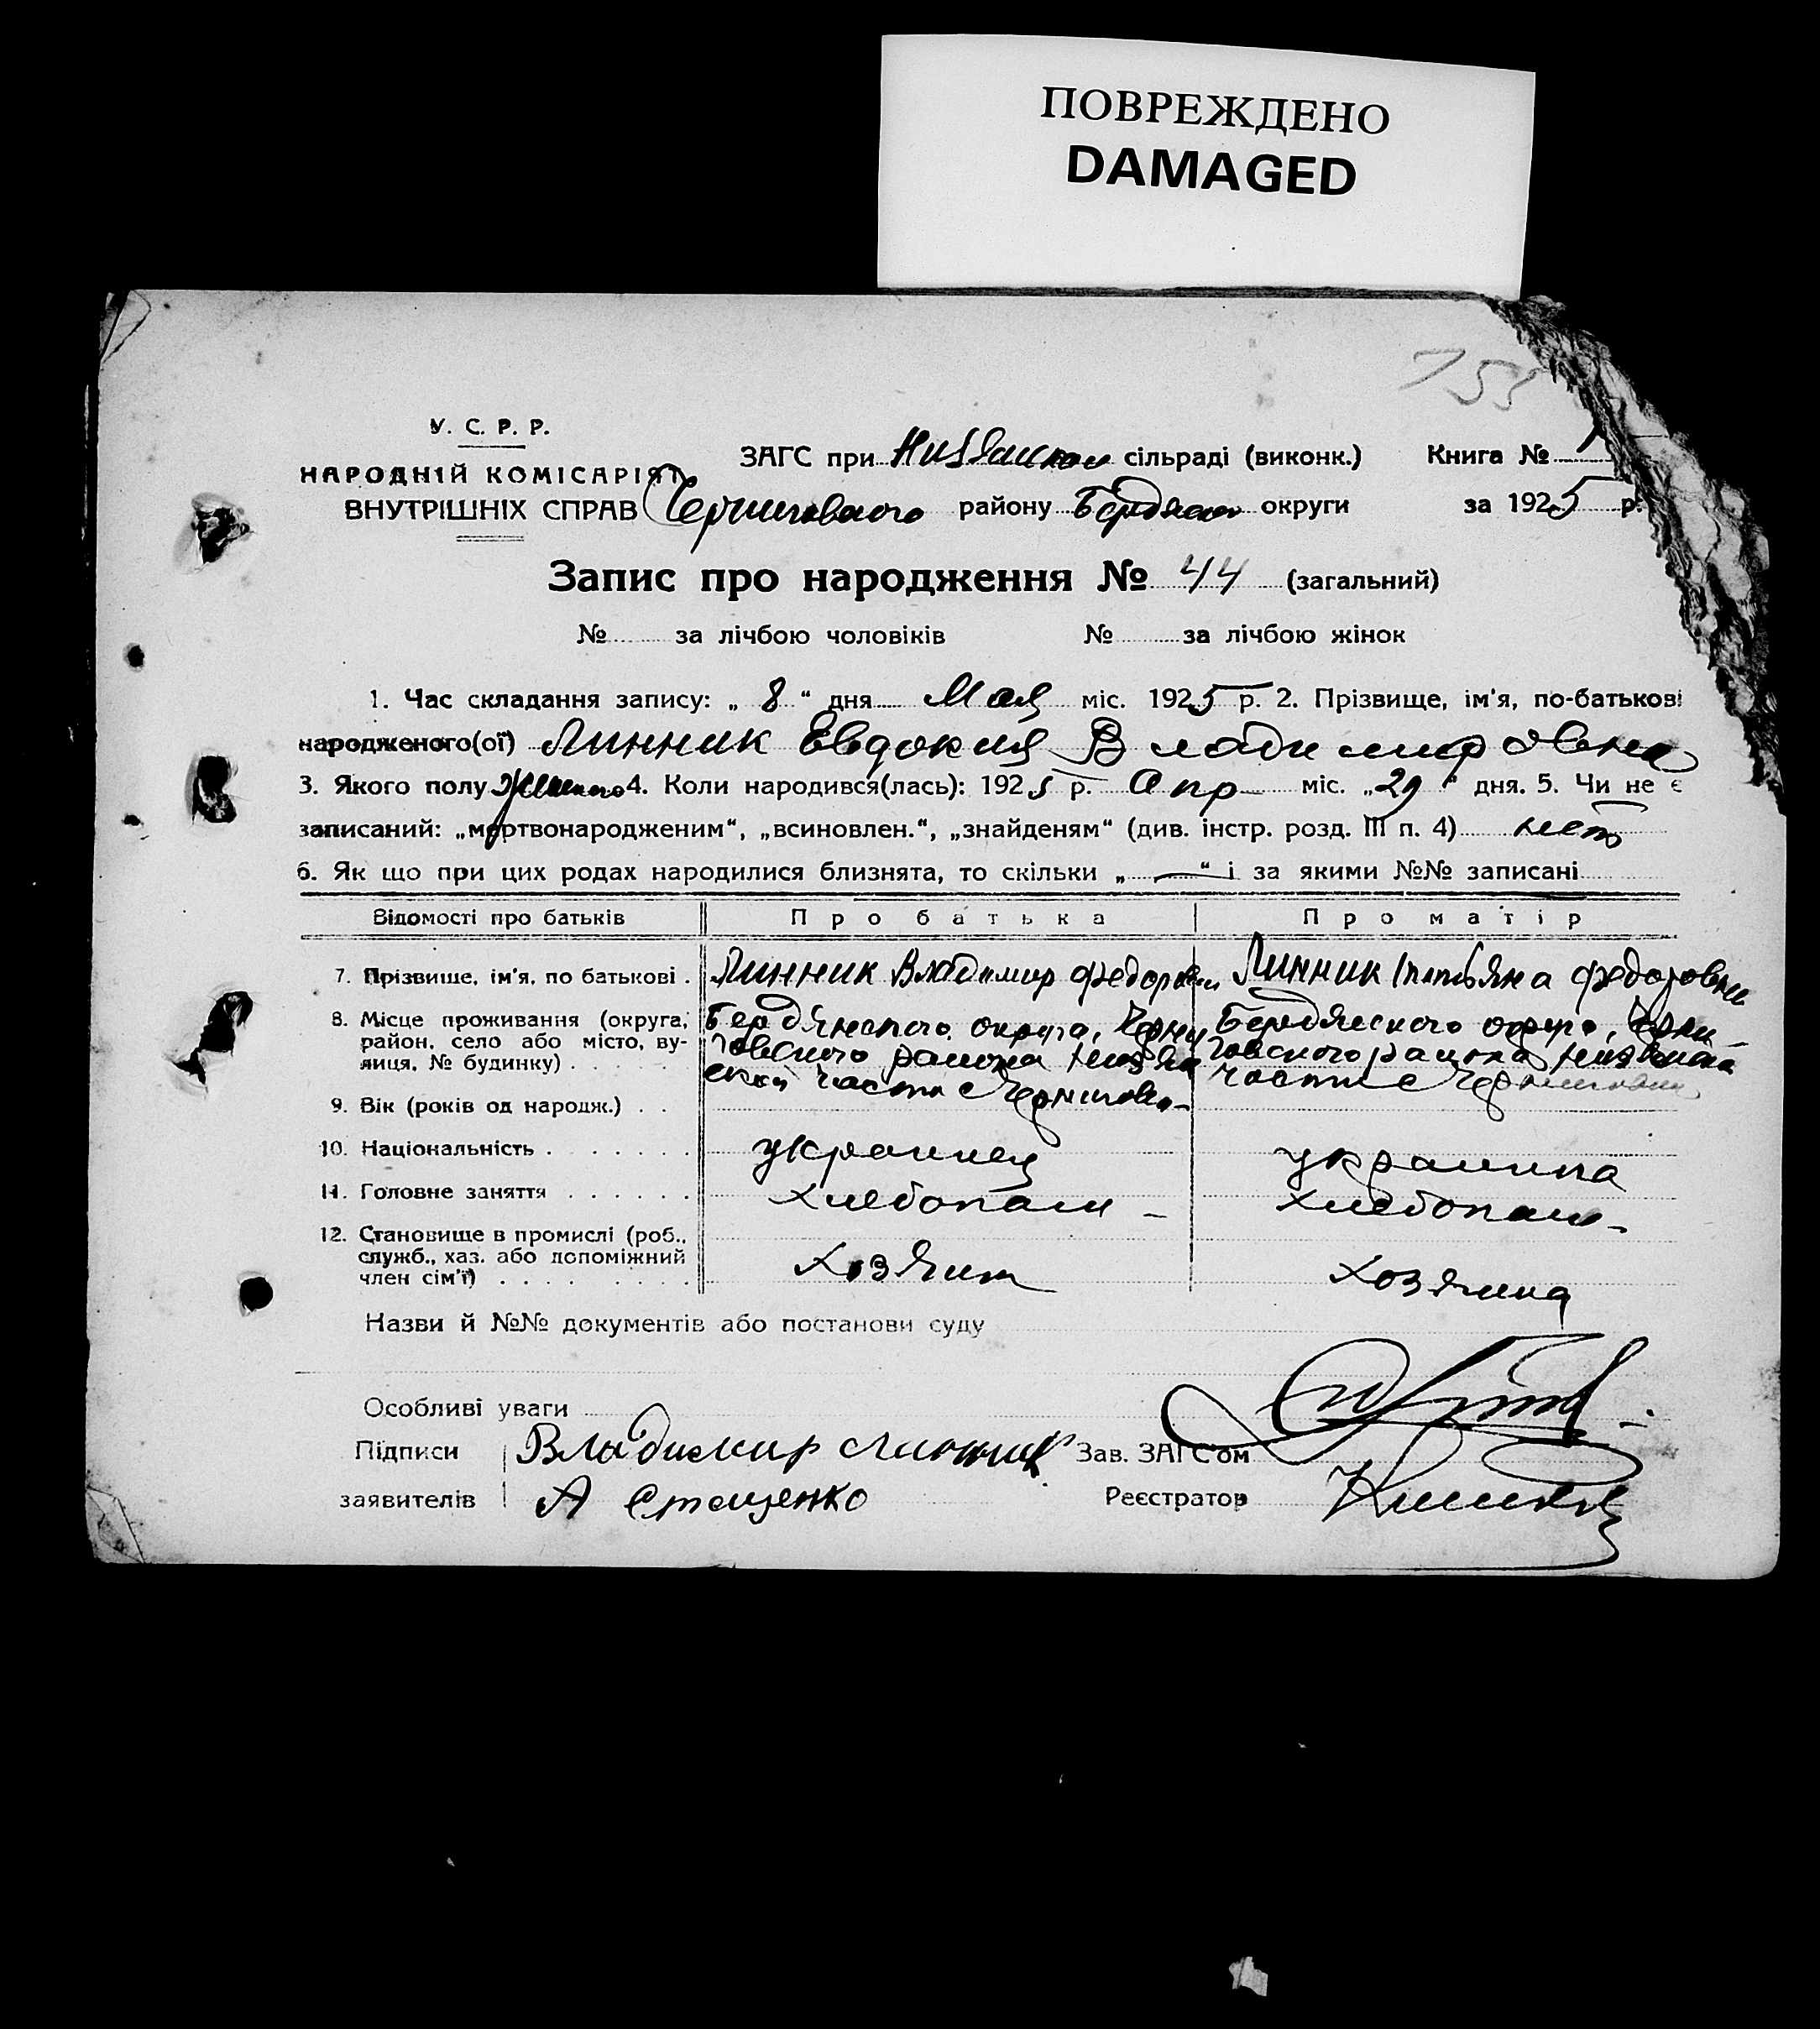 ПОВРЕЖДЕНО
DAMAGED
У. С. Р. Р.
НАРОДНІЙ КОМІСАРІЯТ
ВНУТРІШНІХ СПРАВ
ЗАГС при сільраді (виконк.) Книга № 1
району Бердянск округи за 1925 р.
Запис про народження № 44 (загальний)
№ за лічбою чоловіків № за лічбою жінок
1. Час складання запису: „ 8 “ дня Мая міс. 1925 р. 2. Прізвище, ім'я, по-батькові
народженого(ої) Линник Евдокия Владимировна
3. Якого полу 4. Коли народився(лась): 1925 р. Апр міс. „29“ дня. 5. Чи не є
записаний: „мертвонародженим“, „всиновлен.“, „знайденям“ (див. інстр. розд. III п. 4) нет
6. Як що при цих родах народилися близнята, то скільки „ — “ і за якими №№ записані
Відомості про батьків Про батька Про матір
7. Прізвище, ім'я, по батькові . Линник Владимир Федорович Линник Татьяна Федоровна
8. Місце проживання (округа, район, село або місто, вулиця, № будинку) . . . . .
Бердянского округа, Черни Бердянского округа, Черни
говского района говского района
ской части с Чернигово- части с Черниговки
9. Вік (років од народж.) . .
10. Національність . . . . . . . украинец украинка
11. Головне заняття . . . . . . хлебопаш - хлебопаш-
12. Становище в промислі (роб., служб., хаз. або допоміжний член сім'ї) . . . . . . . . . хозяин хозяина
Назви й №№ документів або постанови суду
Особливі уваги
Підписи Владимир Линник Зав. ЗАГС'ом
заявителів А Стаценко Реєстратор